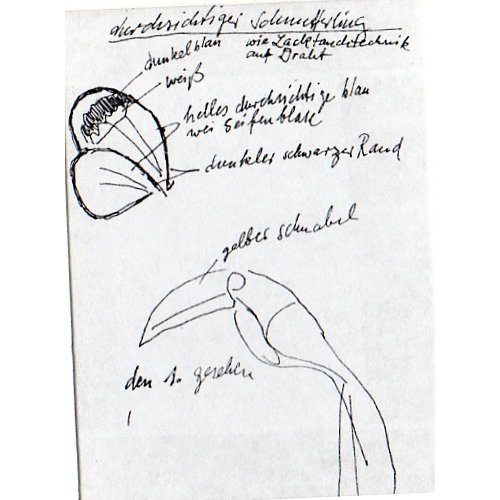 durchsichtiger Schmetterling
dunkelblau
wie Lacktauchtechnik
auf Draht
weiß
helles durchsichtige blau
wei Seifenblase
dunkler schwarzer Rand
gelber schnabel
den 1. gesehen